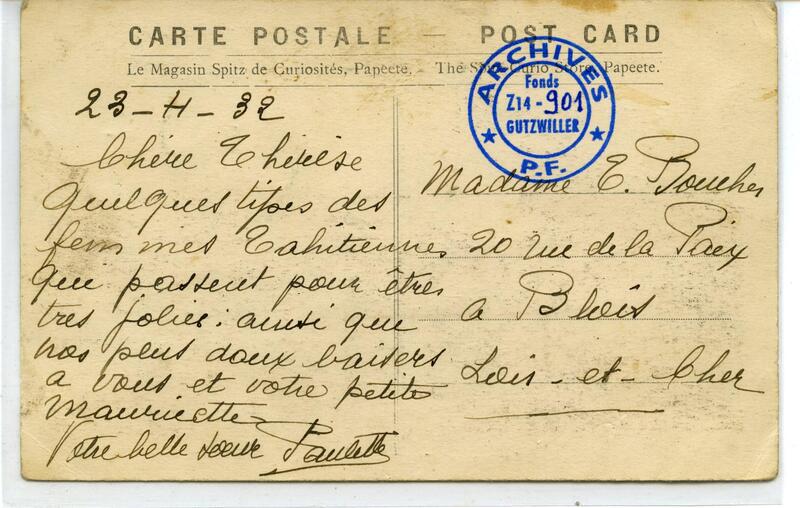 CARTE POSTALE — POST CARD
Le Magasin Spitz de Curiosités, Papeete. The Spitz Curio Store, Papeete.
ARCHIVES
Fonds
Z14-901
GUTZWILLER
P.F.
23-4-32
Chère Thérèse
quelques types des
femmes Tahitiennes
qui passent pour êtres
tres jolies: ainsi que
nos plus doux baisers
a vous et votre petite
Mauricette
Votre belle soeur Paulette
Madame E. Boucher
20 rue de la Paix
a Blois
Lois-et-Cher